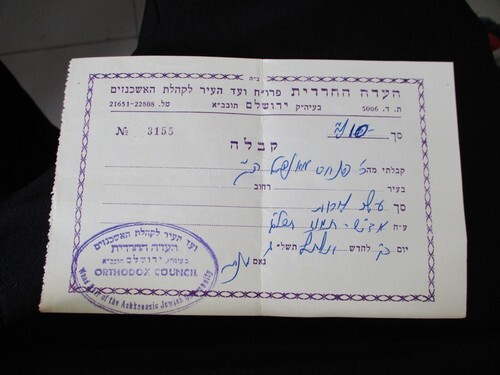 ב״ה
העדה החרדית פרו״ח ועד העיר לקהלת האשכנזים
ת. ד. 5006 בעיה״ק ירושלם תובב״א טל. 21651-22808
№ 3155
סך 10
קבלה
קבלתי מה׳ פנחס
בעיר רחוב
סך עשר לירות
ע״ח
יום לחדש תשל״
נאם
ועד העיר לקהלת האשכנזים
העדה החרדית
בעיה״ק ירושלם תובב״א
ORTHODOX COUNCIL
of the Ashkenasic Jewish Community